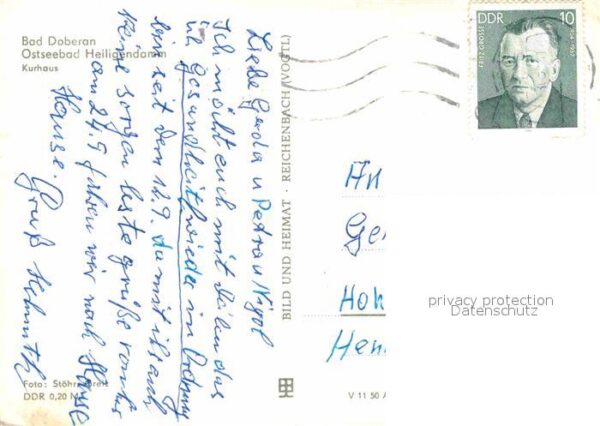 Bad Doberan
Ostseebad Heiligendamm
Kurhaus
Liebe Gerda u Petra u Nigol
Ich möcht euch mitteilen das
ich Gesundheit wieder in Ordnung
bin seit dem 12.9. damit ihr euch
keine sorgen beste grüße von hier
am 24.9 fahren wir nach Hause
Hause.
Gruß Helmuth
Foto: Stöhr,
DDR 0,20 M
BILD UND HEIMAT · REICHENBACH (VOGTL)
V 11 50
DDR 10
FRITZ GROSSE
1904-1957
An
Ge
Hoh
Hen
privacy protection
Datenschutz